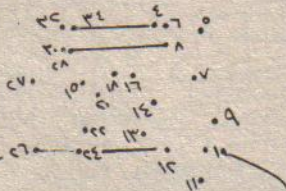 ٣٢ ٣٤ ٤ ٦ ٥
٣٠ ٨
٢٨
٢٧ ١٥ ١٨ ١٦ ٧
٢١ ١٤
٩
٢٢ ١٣
٢٦ ٢٤ ١٢ ١٠
١١